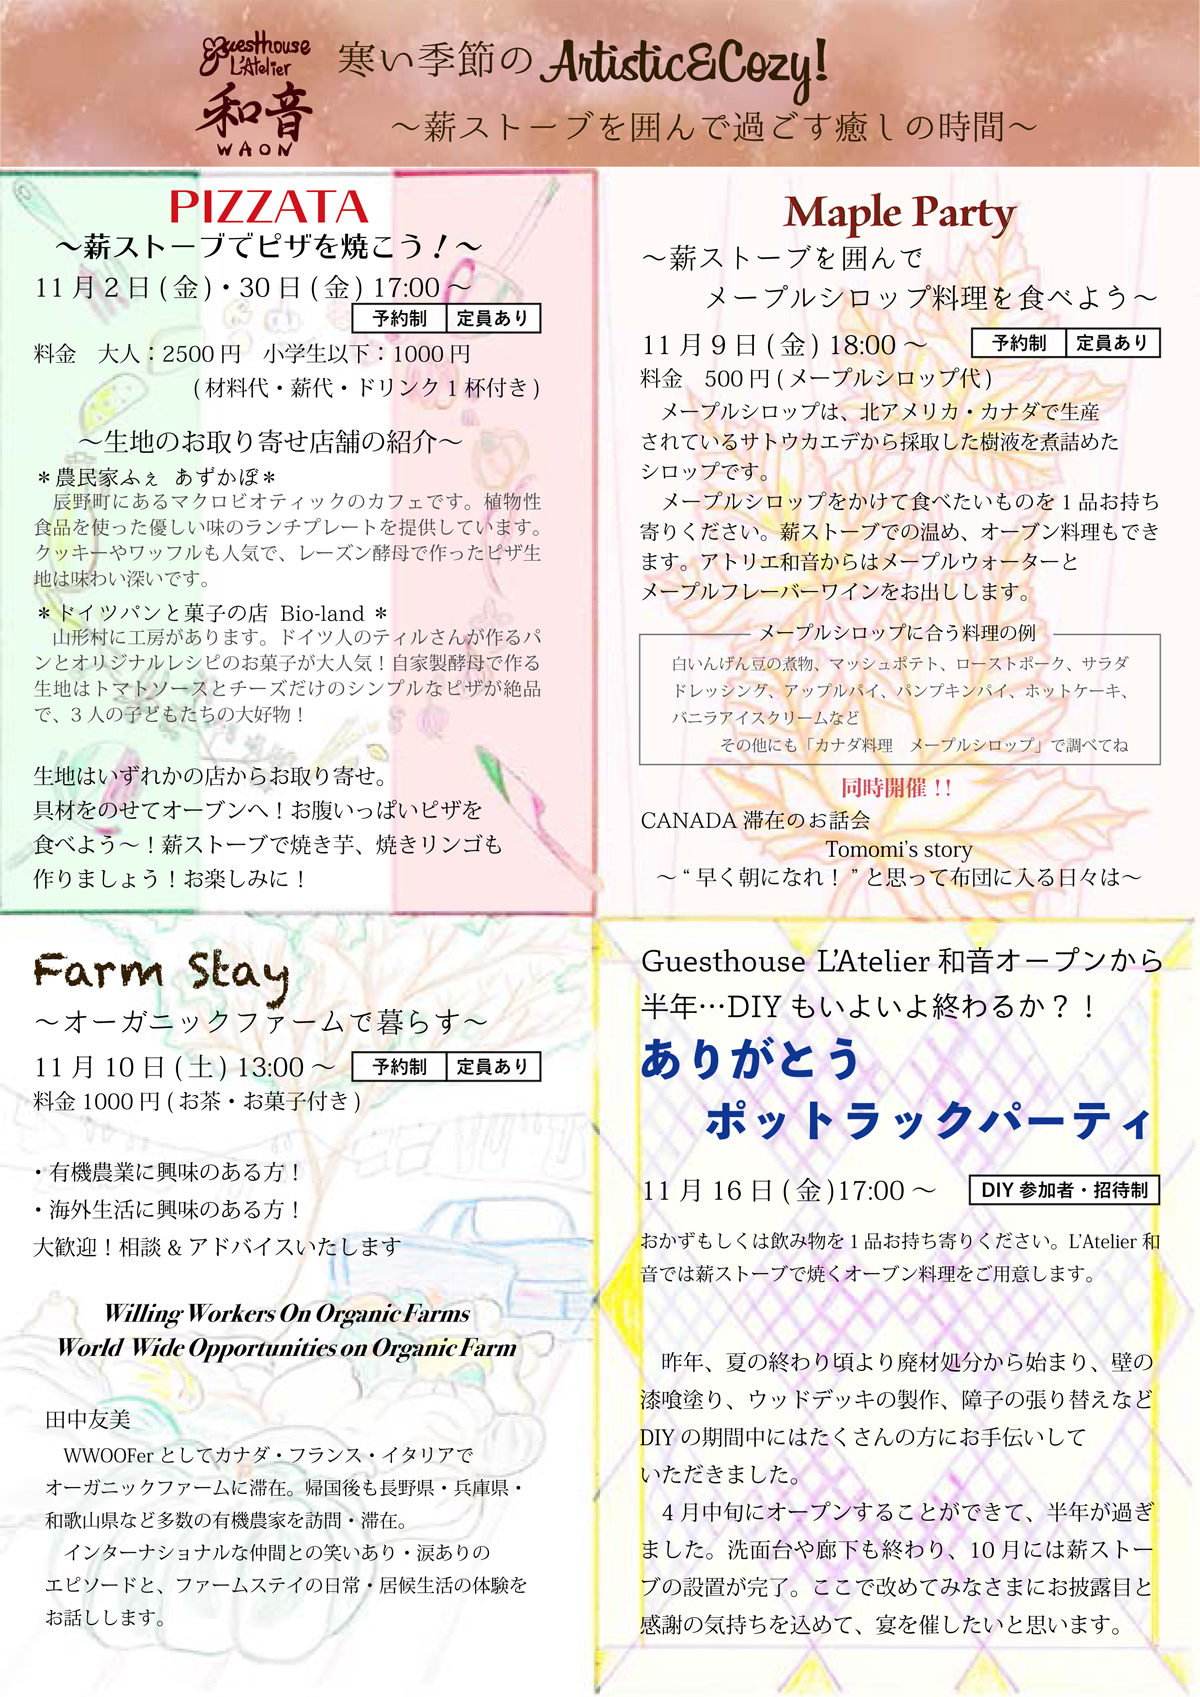 Guesthouse
L'Atelier
和音
WAON
寒い季節の Artistic&Cozy!
～薪ストーブを囲んで過ごす癒しの時間～
PIZZATA
～薪ストーブでピザを焼こう！～
11月2日(金)・30日(金) 17:00～
予約制 定員あり
料金　大人：2500円　小学生以下：1000円
(材料代・薪代・ドリンク1杯付き)
～生地のお取り寄せ店舗の紹介～
＊農民家ふぇ あずかぼ＊
辰野町にあるマクロビオティックのカフェです。植物性
食品を使った優しい味のランチプレートを提供しています。
クッキーやワッフルも人気で、レーズン酵母で作ったピザ生
地は味わい深いです。
＊ドイツパンと菓子の店 Bio-land＊
山形村に工房があります。ドイツ人のティルさんが作るパ
ンとオリジナルレシピのお菓子が大人気！自家製酵母で作る
生地はトマトソースとチーズだけのシンプルなピザが絶品
で、3人の子どもたちの大好物！
生地はいずれかの店からお取り寄せ。
具材をのせてオーブンへ！お腹いっぱいピザを
食べよう～！薪ストーブで焼き芋、焼きリンゴも
作りましょう！お楽しみに！
Maple Party
～薪ストーブを囲んで
メープルシロップ料理を食べよう～
11月9日(金) 18:00～
予約制 定員あり
料金　500円(メープルシロップ代)
メープルシロップは、北アメリカ・カナダで生産
されているサトウカエデから採取した樹液を煮詰めた
シロップです。
メープルシロップをかけて食べたいものを1品お持ち
寄りください。薪ストーブでの温め、オーブン料理もでき
ます。アトリエ和音からはメープルウォーターと
メープルフレーバーワインをお出しします。
メープルシロップに合う料理の例
白いんげん豆の煮物、マッシュポテト、ローストポーク、サラダ
ドレッシング、アップルパイ、パンプキンパイ、ホットケーキ、
バニラアイスクリームなど
その他にも「カナダ料理　メープルシロップ」で調べてね
同時開催!!
CANADA滞在のお話会
Tomomi's story
～“早く朝になれ！”と思って布団に入る日々は～
Farm Stay
～オーガニックファームで暮らす～
11月10日(土) 13:00～
予約制 定員あり
料金1000円(お茶・お菓子付き)
・有機農業に興味のある方！
・海外生活に興味のある方！
大歓迎！相談&アドバイスいたします
Willing Workers On Organic Farms
World Wide Opportunities on Organic Farm
田中友美
WWOOFerとしてカナダ・フランス・イタリアで
オーガニックファームに滞在。帰国後も長野県・兵庫県・
和歌山県など多数の有機農家を訪問・滞在。
インターナショナルな仲間との笑いあり・涙ありの
エピソードと、ファームステイの日常・居候生活の体験を
お話しします。
Guesthouse L'Atelier 和音オープンから
半年…DIYもいよいよ終わるか？！
ありがとう
ポットラックパーティ
11月16日(金)17:00～
DIY参加者・招待制
おかずもしくは飲み物を1品お持ち寄りください。L'Atelier和
音では薪ストーブで焼くオーブン料理をご用意します。
昨年、夏の終わり頃より廃材処分から始まり、壁の
漆喰塗り、ウッドデッキの製作、障子の張り替えなど
DIYの期間中にはたくさんの方にお手伝いして
いただきました。
4月中旬にオープンすることができて、半年が過ぎ
ました。洗面台や廊下も終わり、10月には薪ストー
ブの設置が完了。ここで改めてみなさまにお披露目と
感謝の気持ちを込めて、宴を催したいと思います。